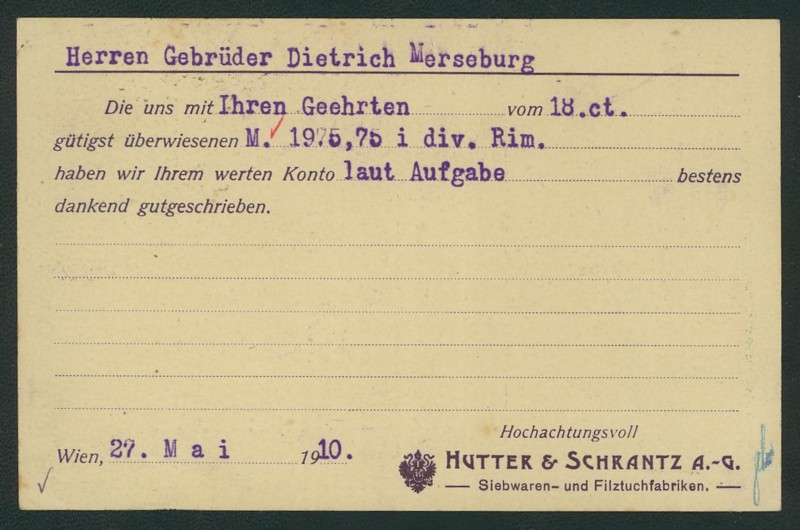 Herren Gebrüder Dietrich Merseburg
Die uns mit Ihren Geehrten vom 18.ct.
gütigst überwiesenen M. 1975,75 i div. Rim.
haben wir Ihrem werten Konto laut Aufgabe bestens
dankend gutgeschrieben.
Wien, 27. Mai 1910.
Hochachtungsvoll
HUTTER & SCHRANTZ A.-G.
Siebwaren- und Filztuchfabriken.